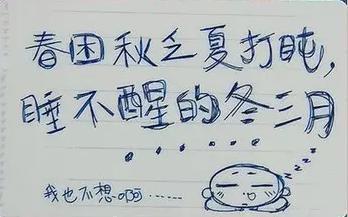 春困秋乏夏打盹,
睡不醒的冬三月
......
zzzz
我也不想啊......